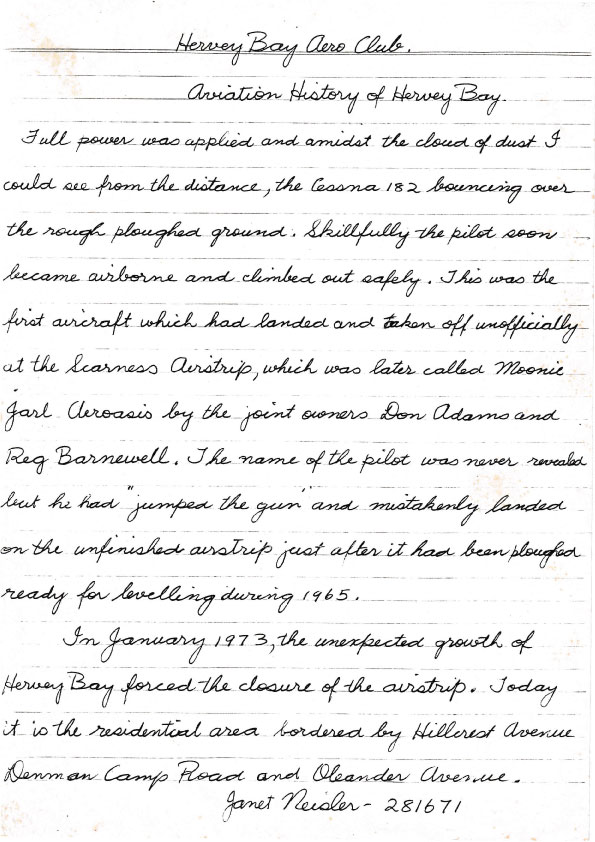 Hervey Bay Aero Club.
Aviation History of Hervey Bay.
Full power was applied and amidst the cloud of dust I
could see from the distance, the Cessna 182 bouncing over
the rough ploughed ground. Skillfully the pilot soon
became airborne and climbed out safely. This was the
first aircraft which had landed and taken off unofficially
at the Scarness Airstrip, which was later called Moonie
Jarl Aeroasis by the joint owners Don Adams and
Reg Barnewell. The name of the pilot was never revealed
but he had "jumped the gun" and mistakenly landed
on the unfinished airstrip just after it had been ploughed
ready for levelling during 1965.
In January 1973, the unexpected growth of
Hervey Bay forced the closure of the airstrip. Today
it is the residential area bordered by Hillcrest Avenue
Denman Camp Road and Oleander Avenue.
Janet Neisler - 281671